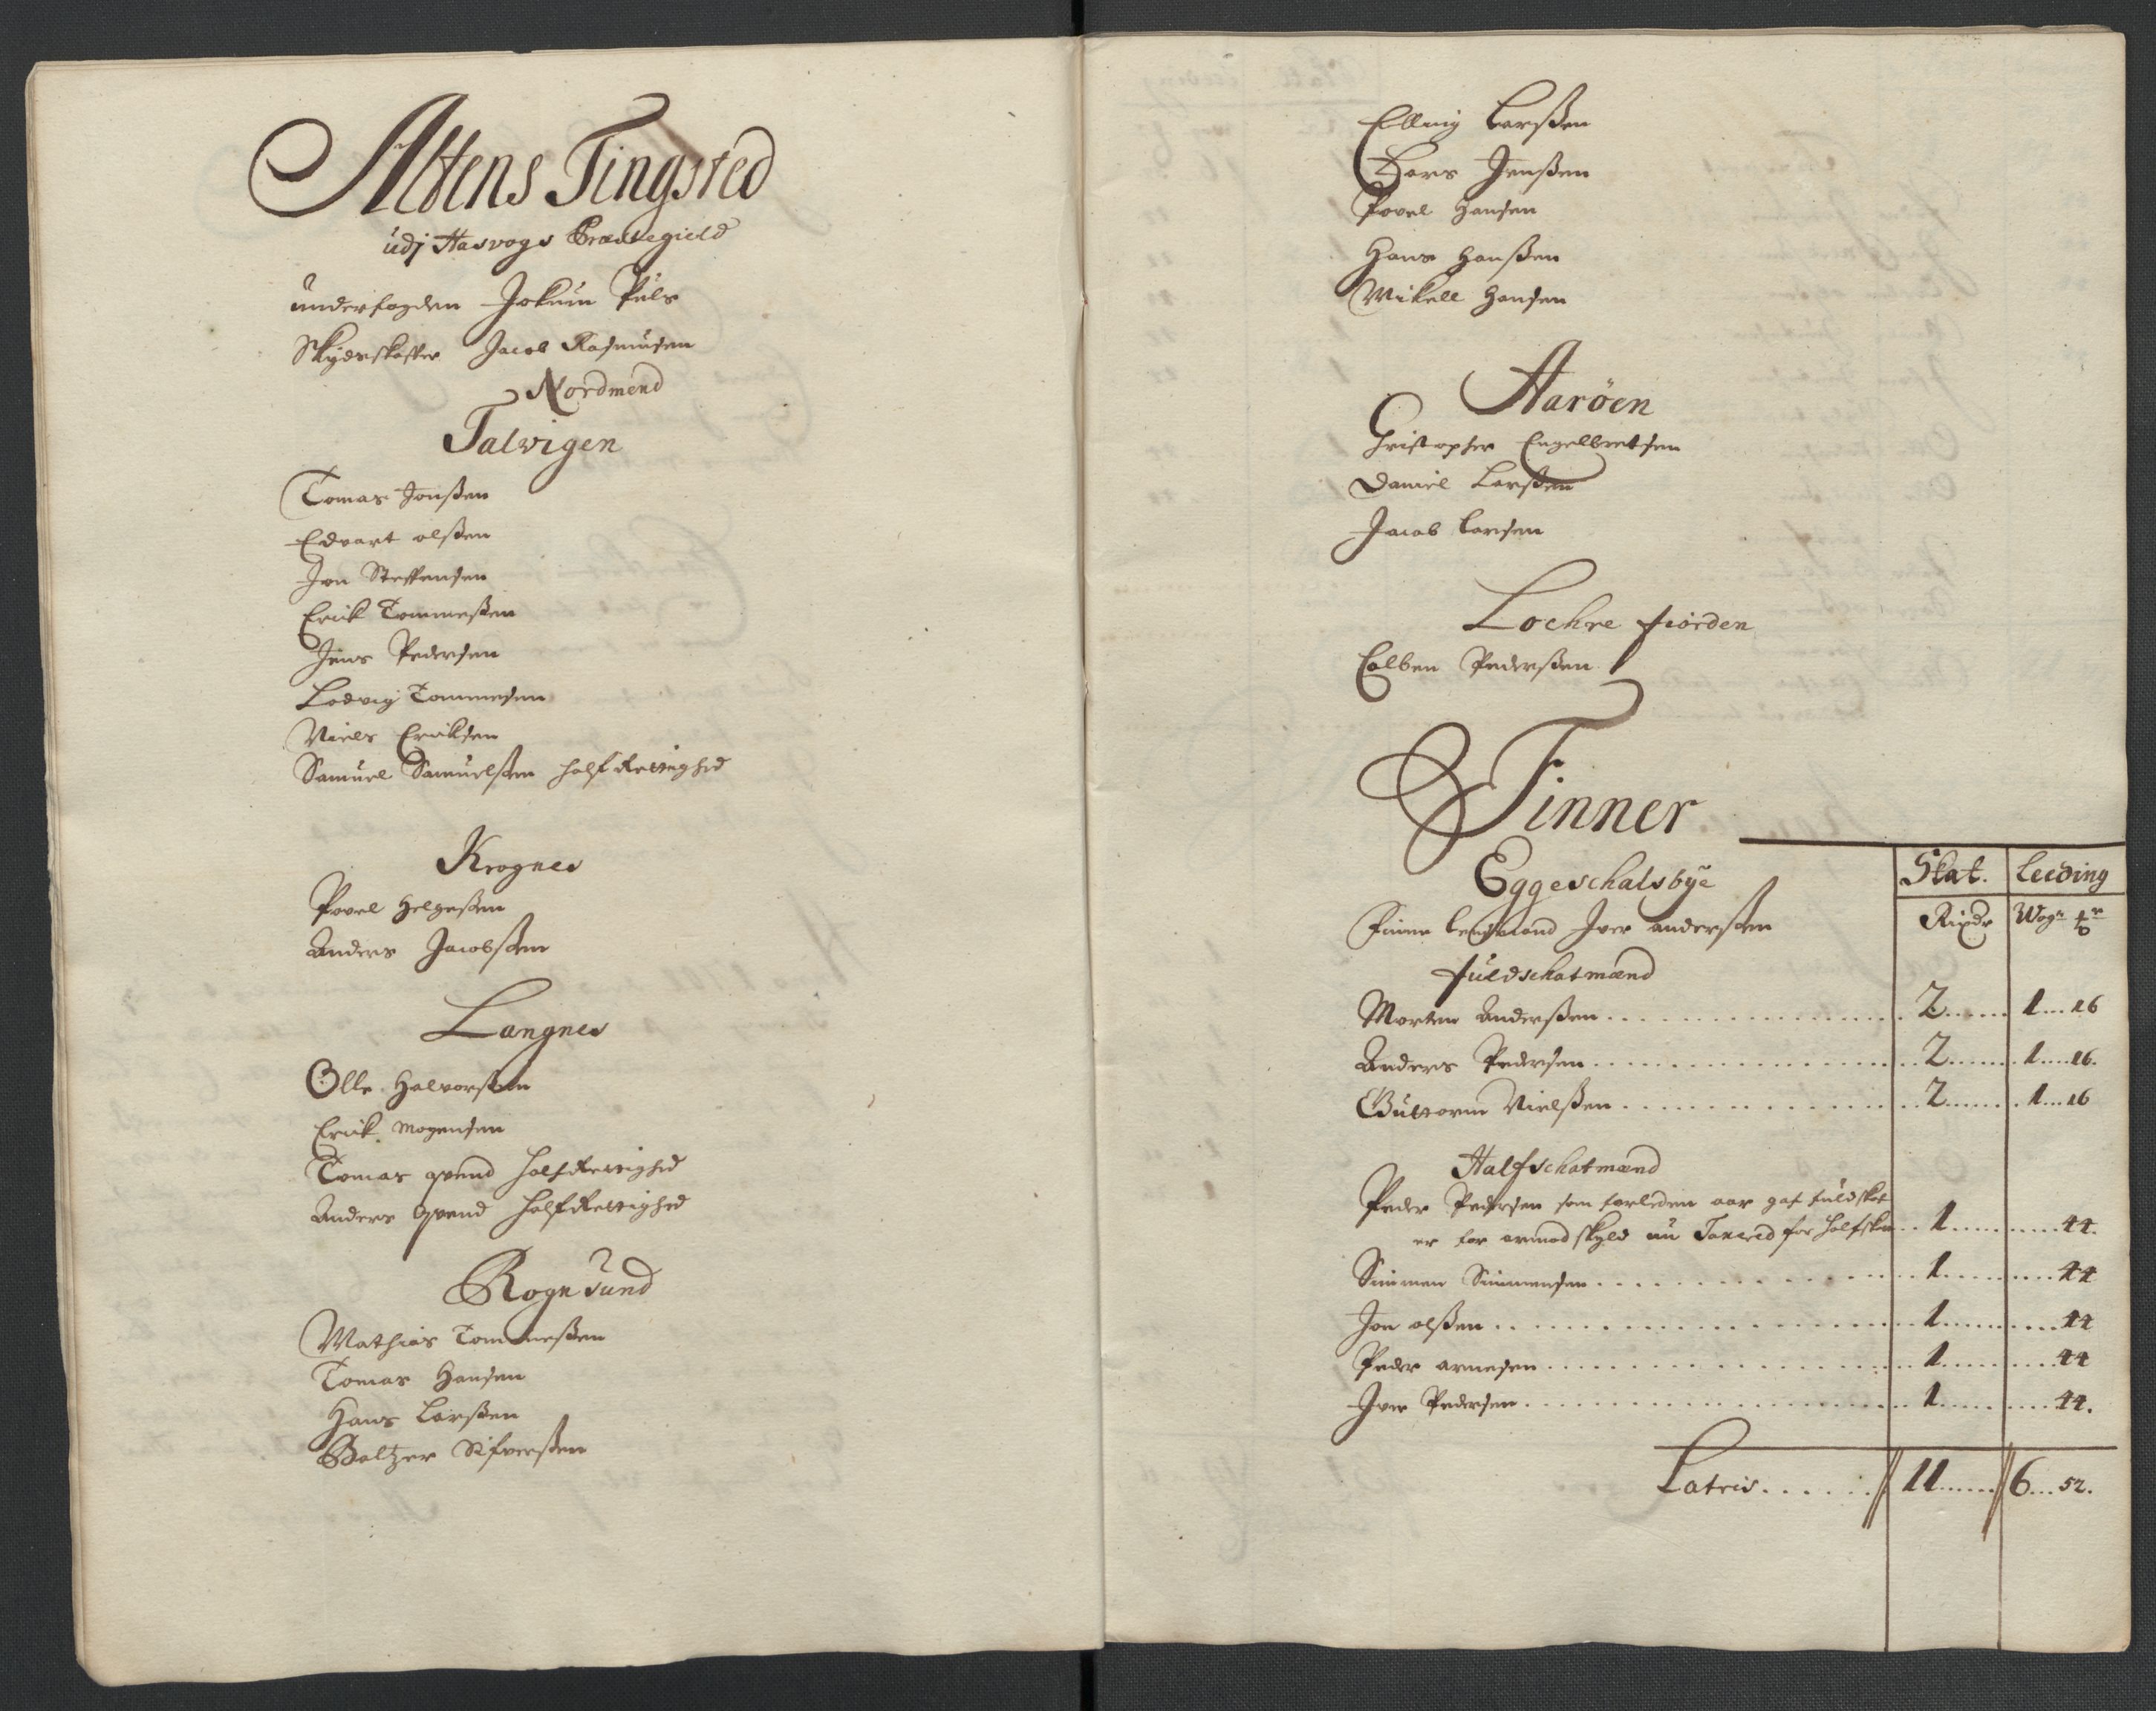 Altens Tingsted
udj Hasvogs Præstegield
underfogden Jokum Puls
Skydsskaffer Jacob Rasmusen
Nordmend
Talvigen
Tomas Jonßen
Edvart olßen
Jon Steffensen
Erick Tommeßen
Jens Pedersen
Lodvig Tommesen
Niels Ericksen
Samuel Samuelßen half Rettighed
Krognes
Povel Helgeßen
Anders Jacobßen
Langnes
Olle Halvorßen
Erick Mogensen
Tomas qvend half Rettighed
Anders qvend half Rettighed
Rognsund
Mathias Tommeßen
Tomas Hansen
Hans Larßen
Baltzer Sifverßen
Elling Larßen
Lars Jenßen
Povel Hansen
Hans Hanßen
Mikell Hansen
Aarøen
Christopher Engelbretsen
Daniel Larßen
Jacob Larsen
Lochre fiorden
Colben Pederßen
Finner
Eggeschalsbye Skat. Leeding
Finne lensmand Iver anderßen Rixdr Wogr
fuldschatmænd
Morten Anderßen 2 1 16
Anders Pedersen 2 1 16.
Guttorm Nielßen 2 1 16
Halfschatmænd
Peder Pedersen som forleden aar gaf fuldskat
er for armod skyld nu Taxered for halfskat 1 44.
Simmen Simmensen 1 44
Jon olßen 1 44
Peder arnesen 1 44
Iver Pedersen 1 44.
Latris 11 6 52.